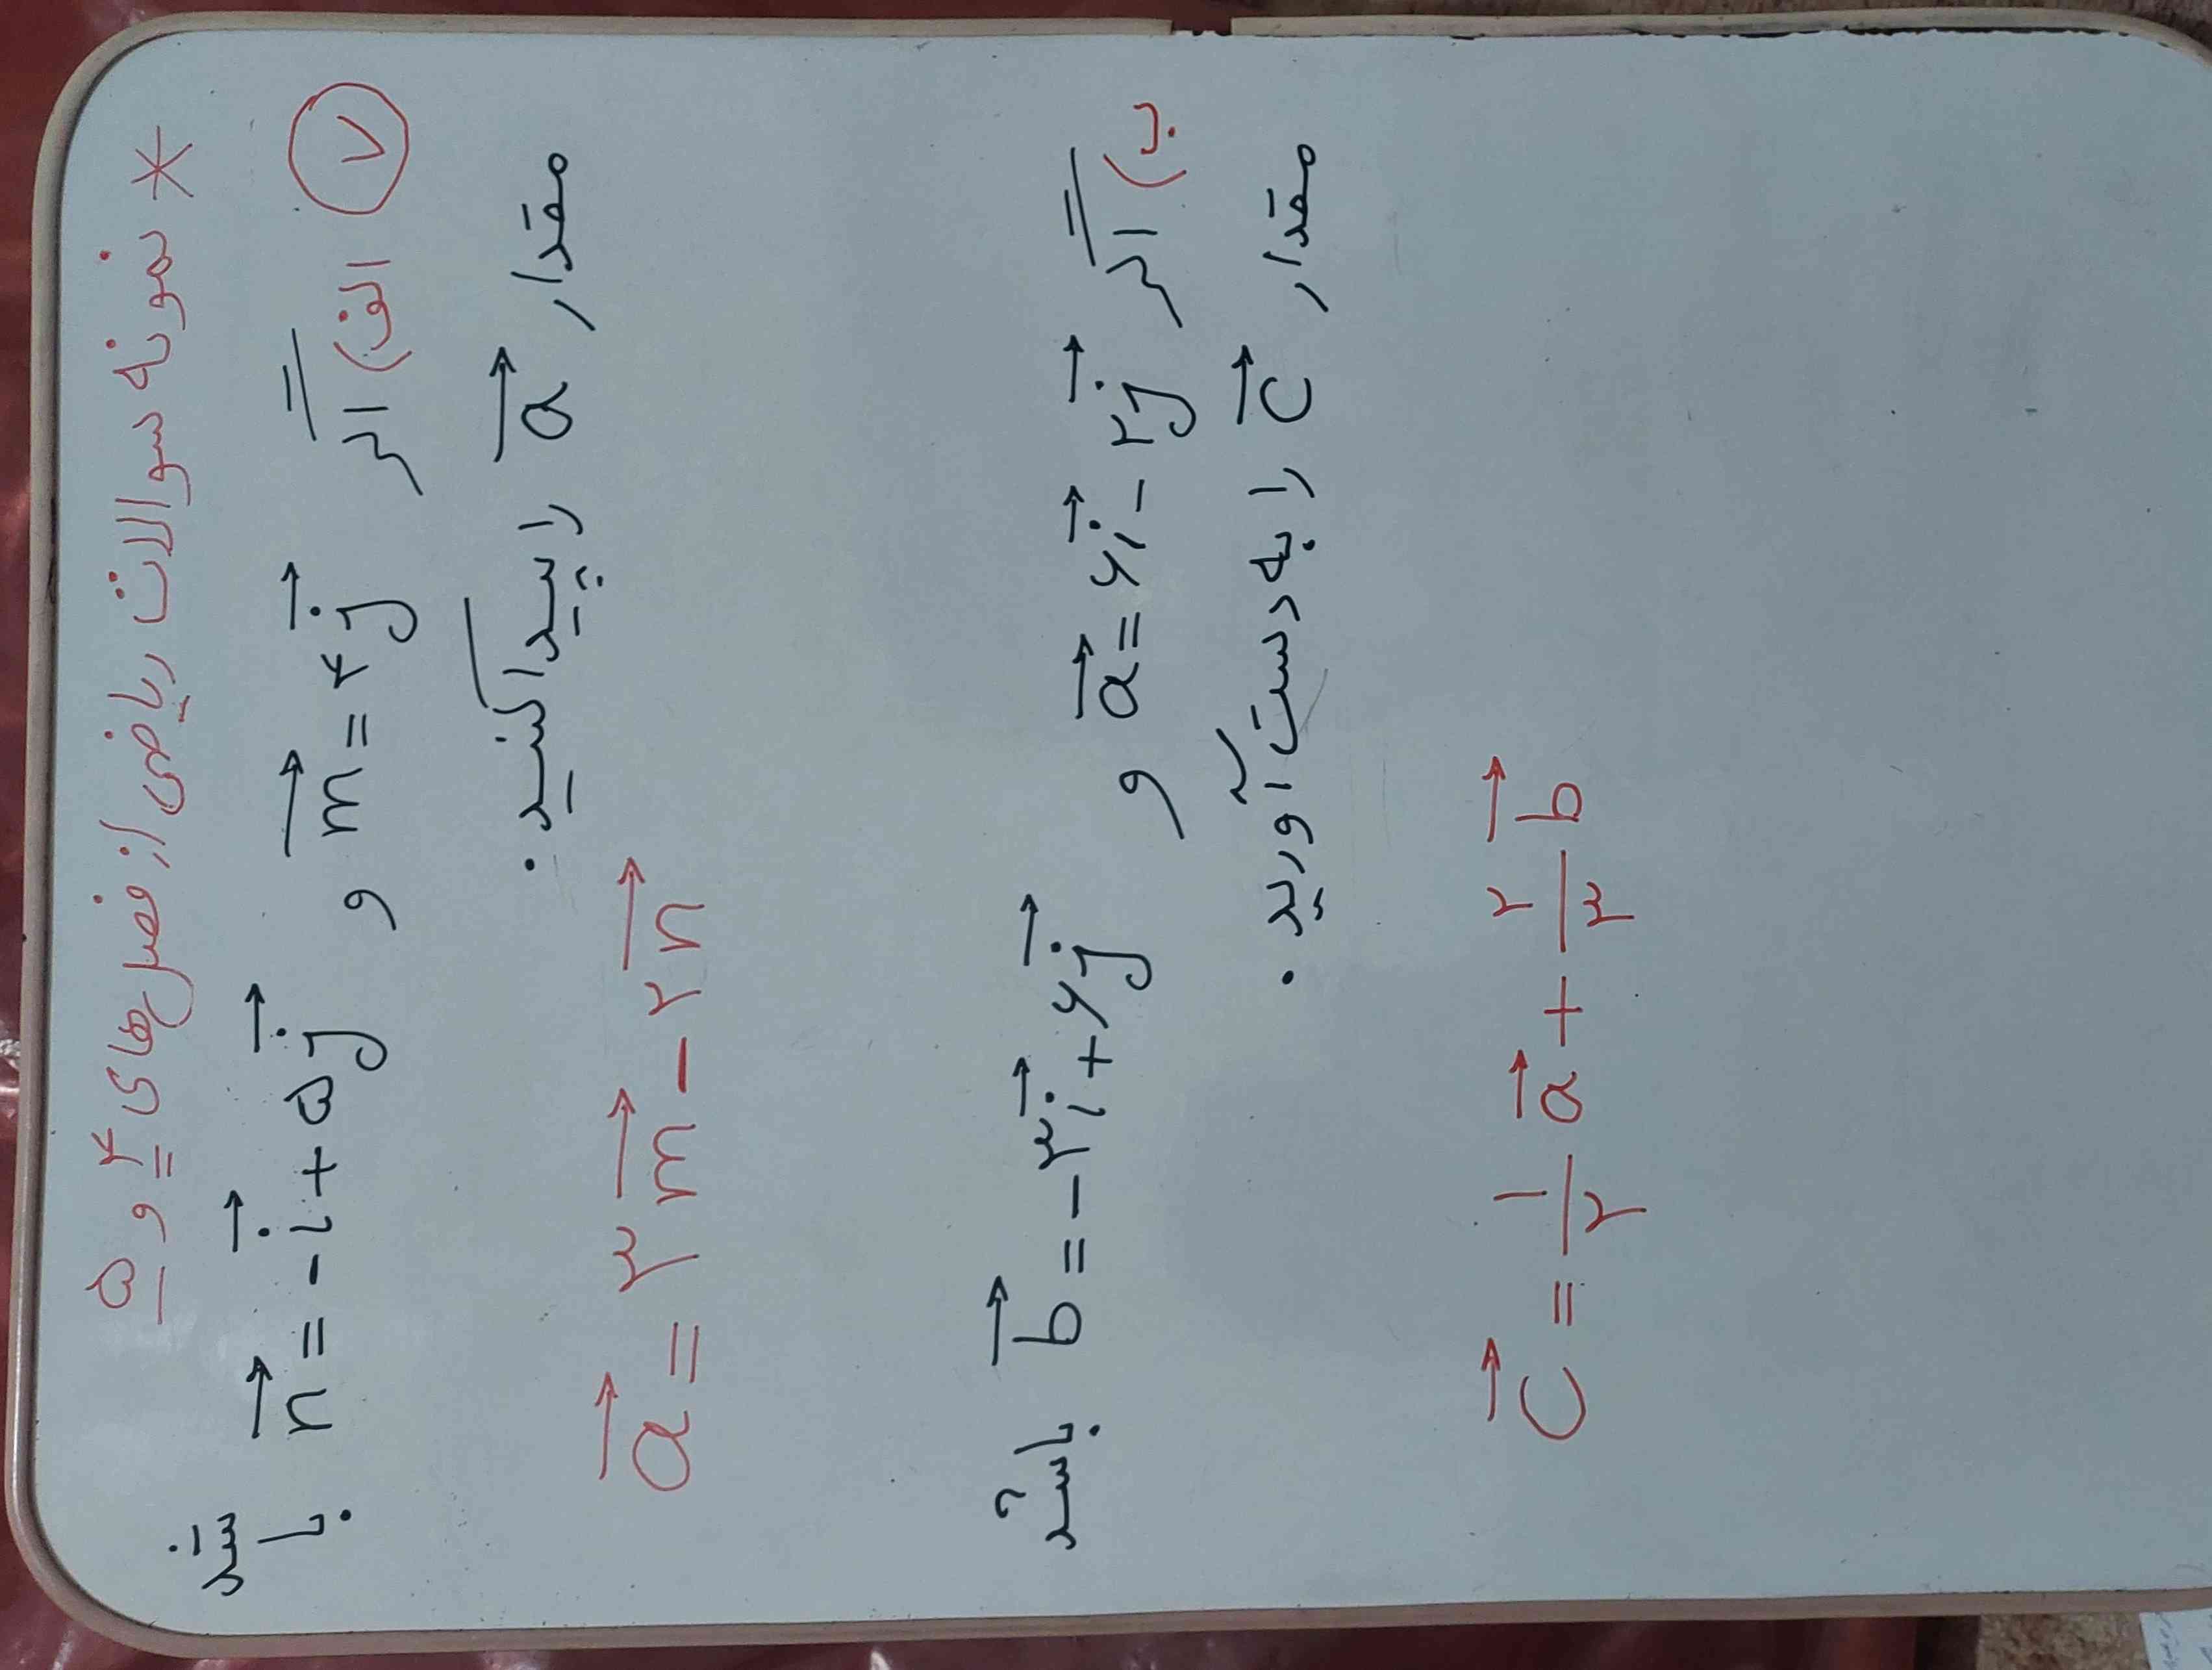 * نمونه سوالات ریاضی از فصل های ۴ و ۵
۷ الف) اگر m = ۴j و n = -i + ۵j باشد
مقدار a را پیدا کنید.
a = ۳m - ۲n
ب) اگر a = ۶i - ۲j و b = -۳i + ۶j باشد
مقدار c را به دست آورید.
c = ۱/۲ a + ۲/۳ b